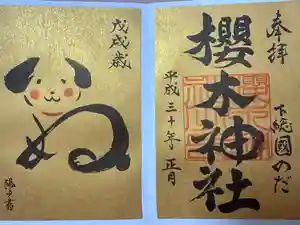 戊戌歳
ぬ
奉拝
櫻木神社
下総國のだ
平成三十年 正月